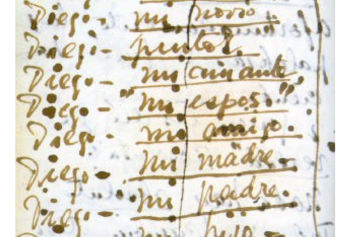 Diego - mi novio.
Diego - pintor.
Diego - mi amante
Diego - "mi esposo"
Diego - mi amigo.
Diego - mi madre.
Diego - mi padre.
Diego - mi hijo -